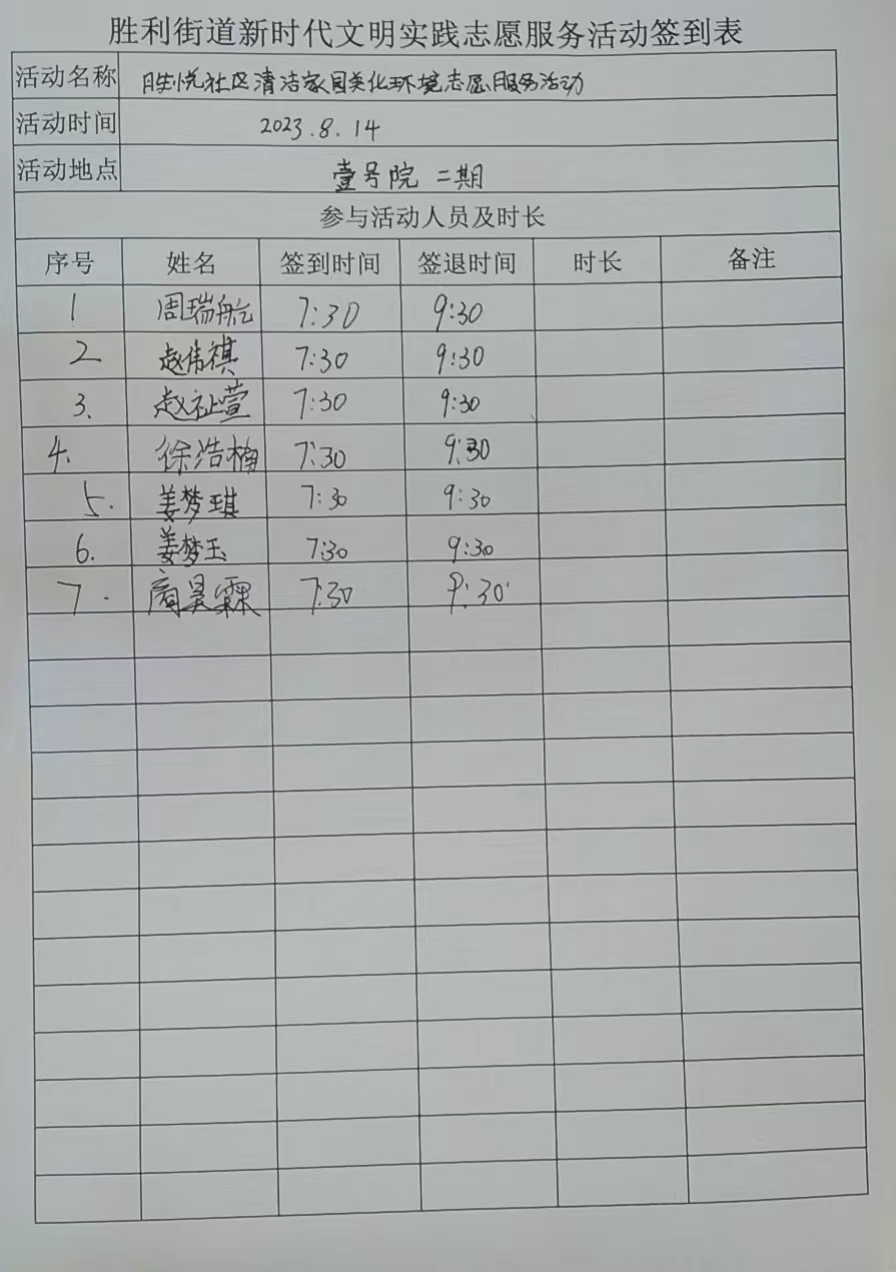 胜利街道新时代文明实践志愿服务活动签到表
活动名称 胜悦社区清洁家园美化环境志愿服务活动
活动时间 2023.8.14
活动地点 壹号院 二期
参与活动人员及时长
序号 姓名 签到时间 签退时间 时长 备注
1 周瑞航 7:30 9:30
2 赵伟祺 7:30 9:30
3. 赵祉萱 7:30 9:30
4. 徐浩楠 7:30 9:30
5. 姜梦琪 7:30 9:30
6. 姜梦玉 7:30 9:30
7. 昊霖 7:30 9:30